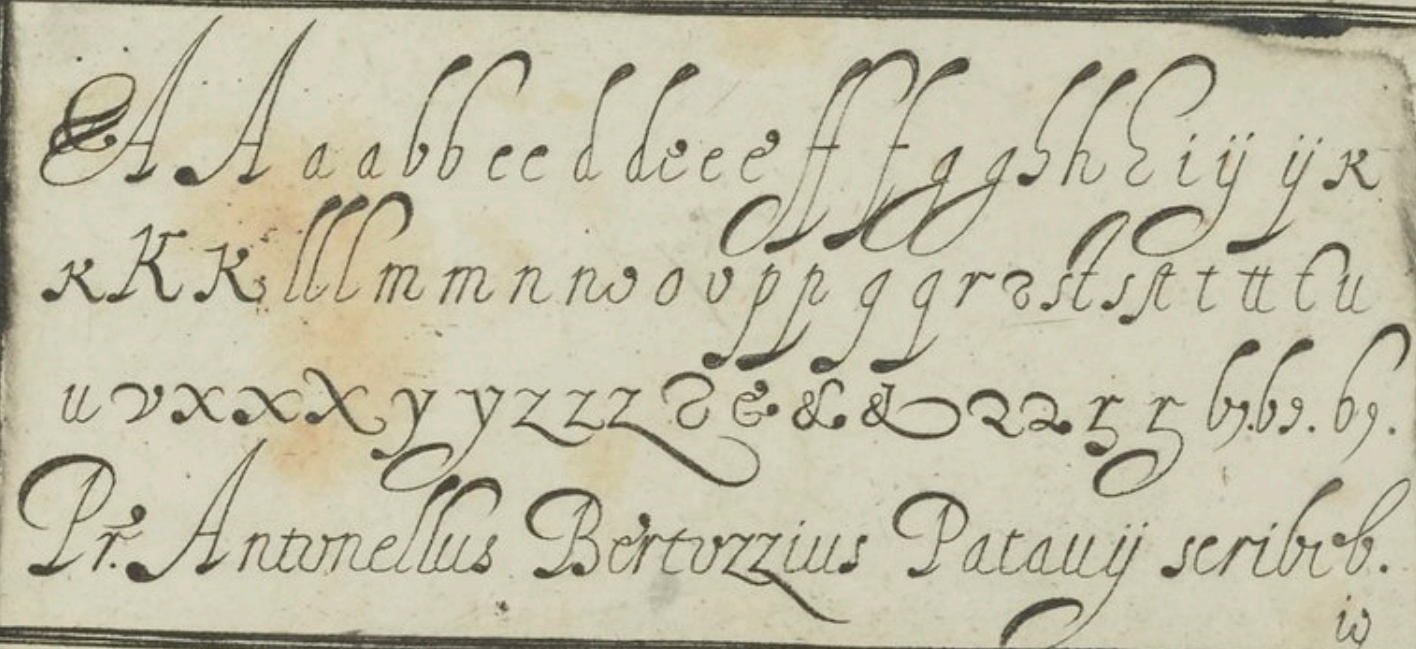 A A a a b b c c d d e e e ff f g g h h i ij ij k
k K K l l l m m n n o o o p p q q r r st s st t tt t u
u v x x x y y z z z & & & & b9. b9. b9.
Pr. Antonellus Bertozzius Patauij scribeb.